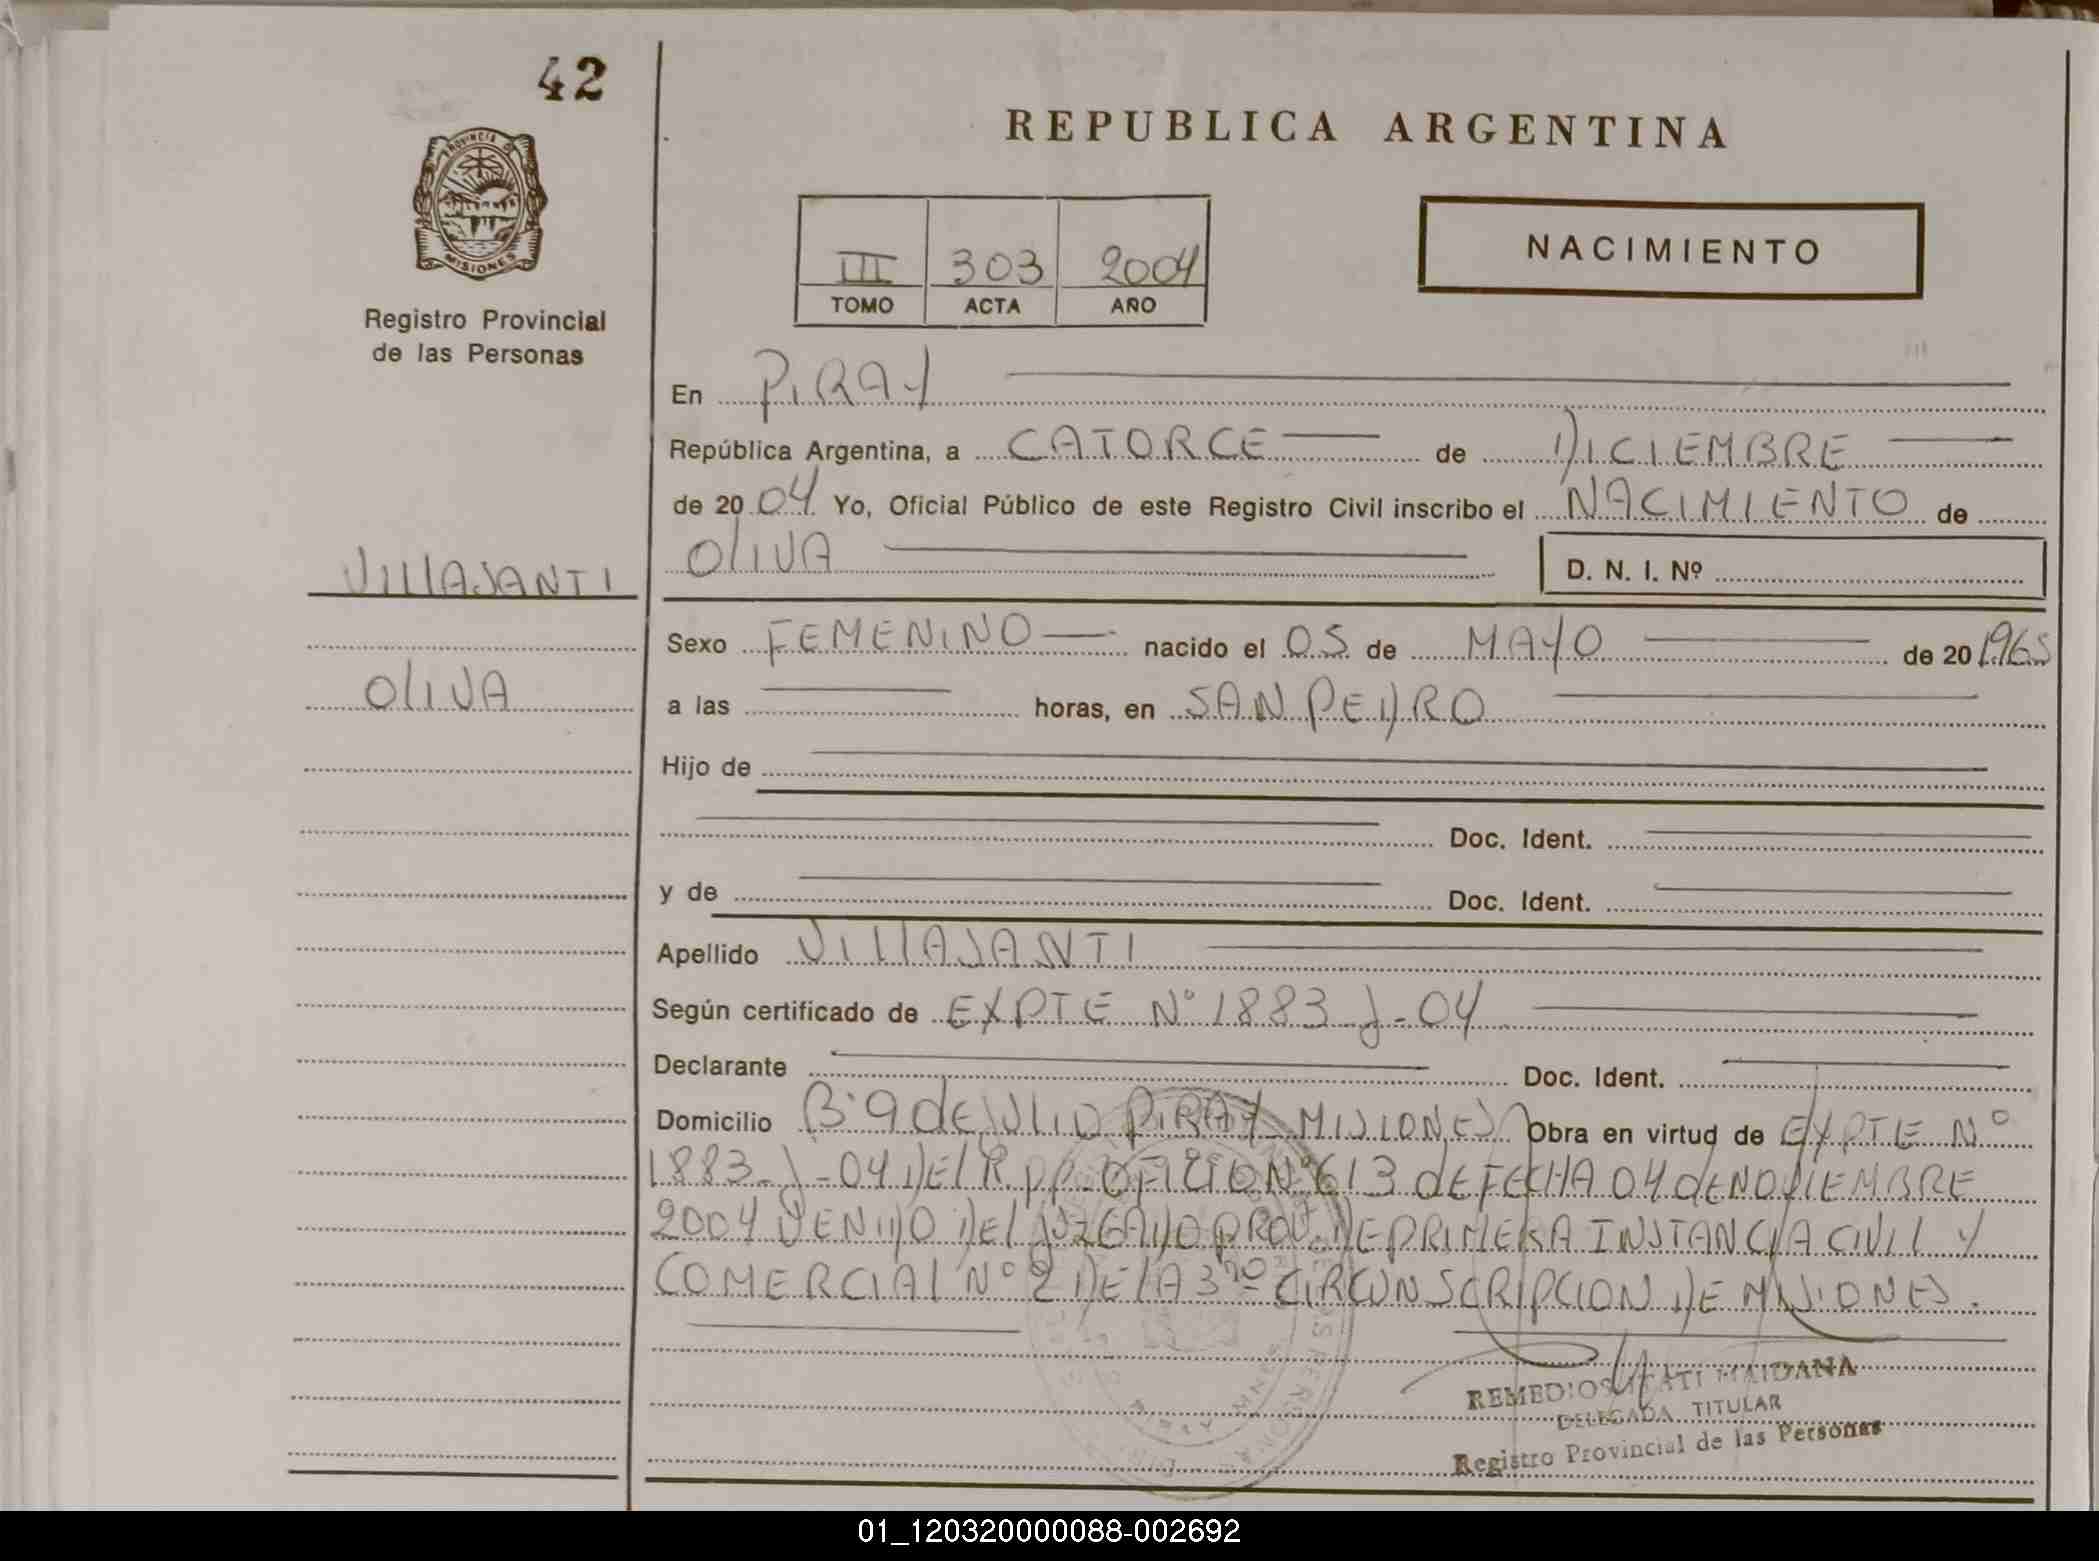 42
PROVINCIA DE
MISIONES
Registro Provincial
de las Personas
REPUBLICA ARGENTINA
III 303 2004
TOMO ACTA AÑO
NACIMIENTO
En PIRAY
República Argentina, a CATORCE de DICIEMBRE
de 20 04 Yo, Oficial Público de este Registro Civil inscribo el NACIMIENTO de
OLIVA D. N. I. Nº
VILLASANTI
OLIVA
Sexo FEMENINO nacido el 05 de MAYO de 20 1965
a las horas, en SAN PEDRO
Hijo de
Doc. Ident.
y de Doc. Ident.
Apellido VILLASANTI
Según certificado de EXPTE Nº 1883-J-04
Declarante Doc. Ident.
Domicilio Bº 9 dE JULIO PIRAY MISIONES Obra en virtud de EXPTE Nº
1883-J-04 DEL R.P.P. OFICIO Nº 613 dE FECHA 04 dE NOVIEMBRE
2004 VENIDO DEL JUZGADO PROV. DE PRIMERA INSTANCIA CIVIL Y
COMERCIAL Nº 2 DE LA 3ra CIRCUNSCRIPCION DE MISIONES.
REMEDIOS ITATI MAIDANA
DELEGADA TITULAR
Registro Provincial de las Personas
01_120320000088-002692